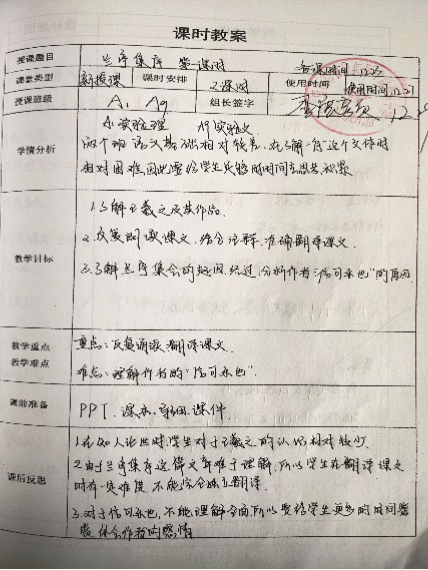 课时教案
授课题目 兰亭集序 第一课时 备课时间:12.25
课堂类型 新授课 课时安排 2课时 使用时间 使用时间:12.27
授课班级 A1 A9 组长签字
A1实验理 A9实验文
学情分析 两个班语文基础相对较差,在了解
相对困难,因此需给学生足够的时间去思考、积累
1.了解王羲之及其作品.
2.反复朗读课文,结合注释,准确翻译课文.
教学目标
3.了解兰亭集会的 原因、经过,分析作者“信可乐也”的原因
教学重点 重点:反复诵读,翻译课文.
教学难点 难点:理解作者的“信可乐也”.
课前准备 PPT、课本、 课件
1.在知人论世时,学生对于王羲之的认识相对较少
2.由于兰亭集序这篇文章难于理解,所以学生在翻译课文
课后反思 时有一定难度,不能完全独立翻译.
3.对于信可乐也,不能理解 所以要给学生更多的时间
体会作者的感情